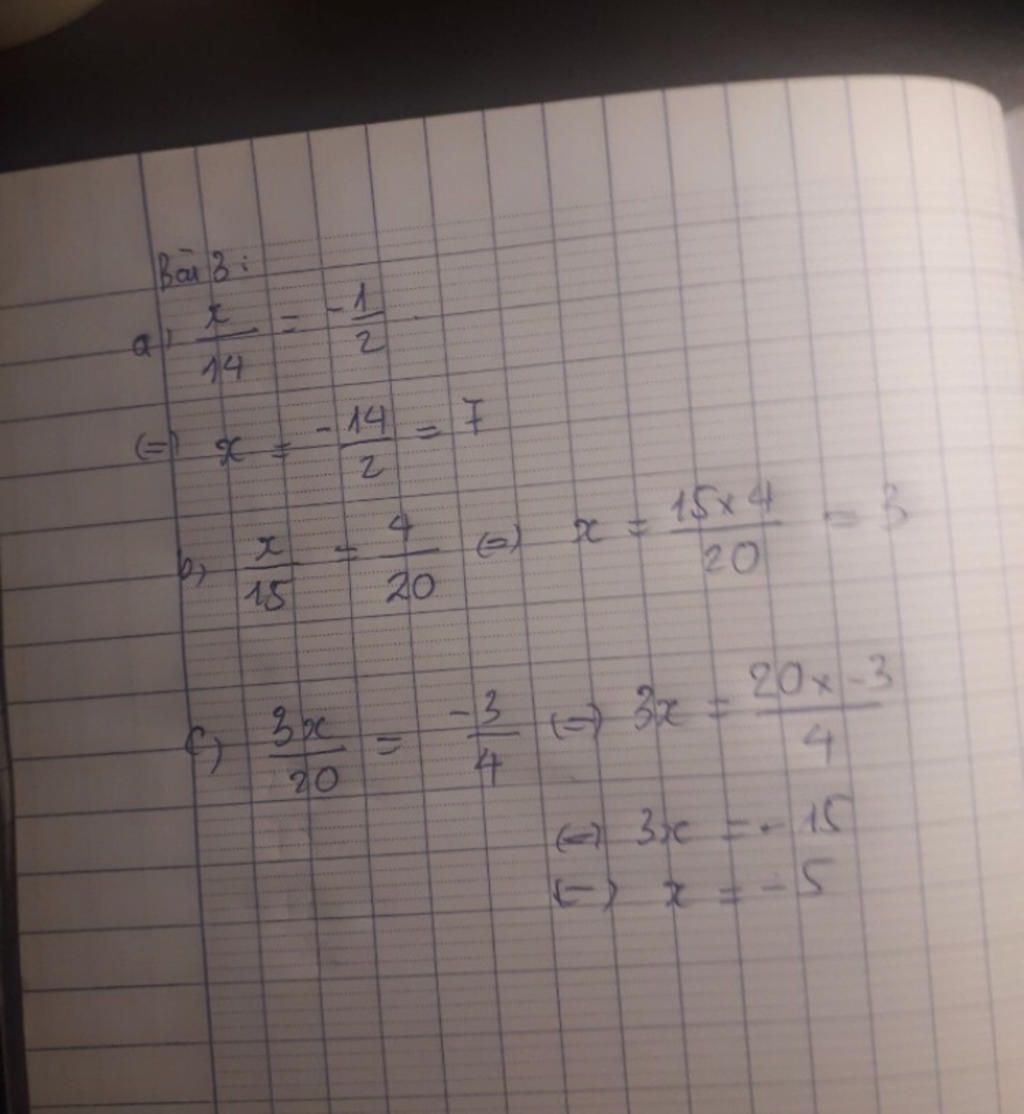 Bài 3:
a, x/14 = -1/2
(=) x = -14/2 = 7
b, x/15 = 4/20 (=) x = 15x4/20 = 3
c, 3x/20 = -3/4 (=) 3x = 20x-3/4
(=) 3x = -15
(=) x = -5